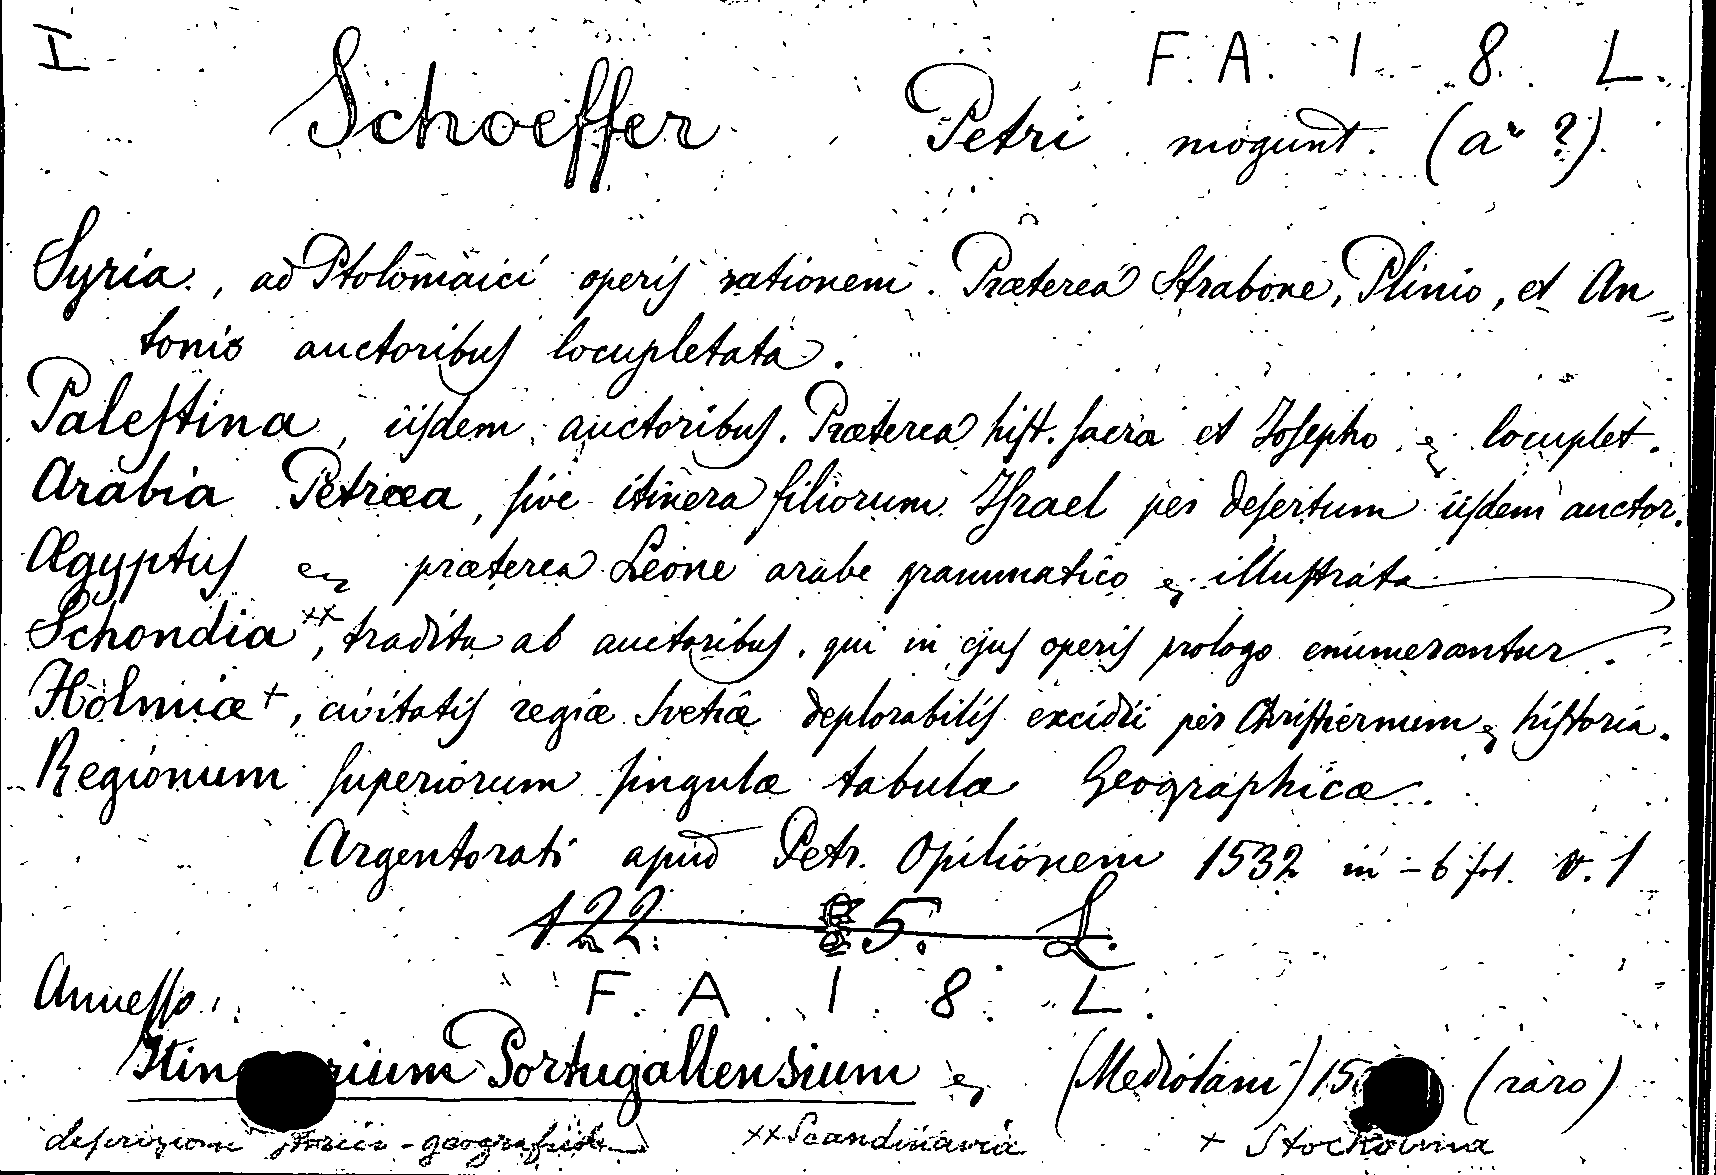 I F. A. 1 8. L.
Schoeffer Petri mogunt. (aº ?).
Syria., ad Ptolomaici operis rationem. Præterea Strabone, Plinio, et An=
tonio auctoribus locupletata.
Palestina, iisdem auctoribus. Præterea hist. sacra et Josepho locuplet.
Arabia Petræa, sive itinera filiorum Israel per desertum iisdem auctor.
Ægyptus præterea Leone arabe grammatico illustrata
Schondia ××, tradita ab auctoribus, qui in ejus operis prologo enumerantur.
Holmiæ +, civitatis regiæ Svetiæ deplorabilis excidii per Christiernum historia.
Regionum superiorum singulæ tabulæ Geographicæ.
Argentorati apud Petr. Opilionem 1532 in - 6 fol. v. 1
122. 85. L.
Annesso: F. A. 1. 8. L.
Itin rium Portugallensium (Mediolani) 15 (raro)
descrizioni storico-geografiche ×× Scandinavia + Stockolma